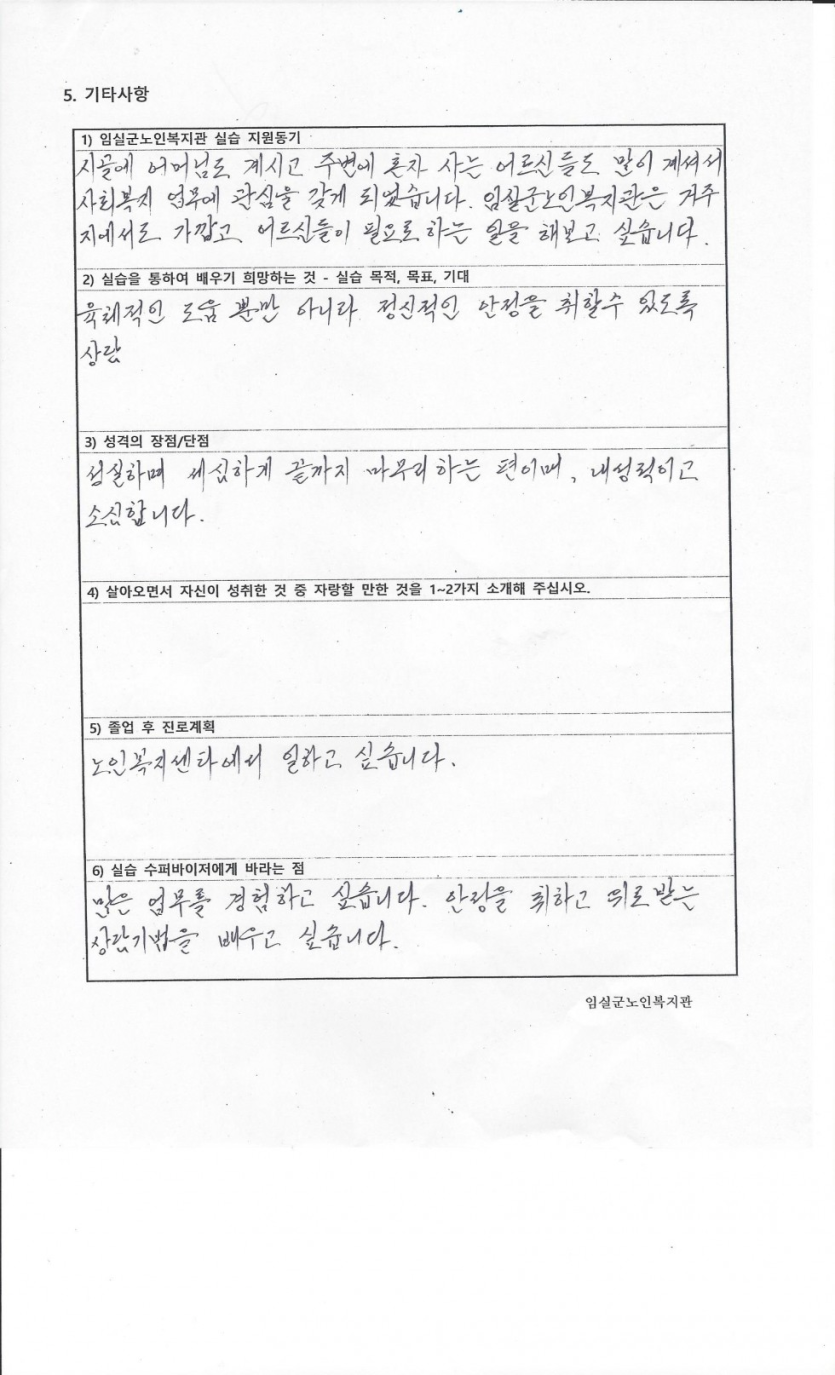 5. 기타사항
1) 임실군노인복지관 실습 지원동기
시골에 어머님도 계시고 주변에 혼자 사는 어르신들도 많이 계셔서
사회복지 업무에 관심을 갖게 되었습니다. 임실군노인복지관은 거주
지에서도 가깝고 어르신들이 필요로 하는 일을 해보고 싶습니다.
2) 실습을 통하여 배우기 희망하는 것 - 실습 목적, 목표, 기대
육체적인 도움 뿐만 아니라 정신적인 안정을 취할수 있도록
상담
3) 성격의 장점/단점
성실하며 세심하게 끝까지 마무리 하는 편이며, 내성적이고
소심합니다.
4) 살아오면서 자신이 성취한 것 중 자랑할 만한 것을 1~2가지 소개해 주십시오.
5) 졸업 후 진로계획
노인복지센타에서 일하고 싶습니다.
6) 실습 수퍼바이저에게 바라는 점
많은 업무를 경험하고 싶습니다. 안정을 취하고 위로받는
상담기법을 배우고 싶습니다.
임실군노인복지관